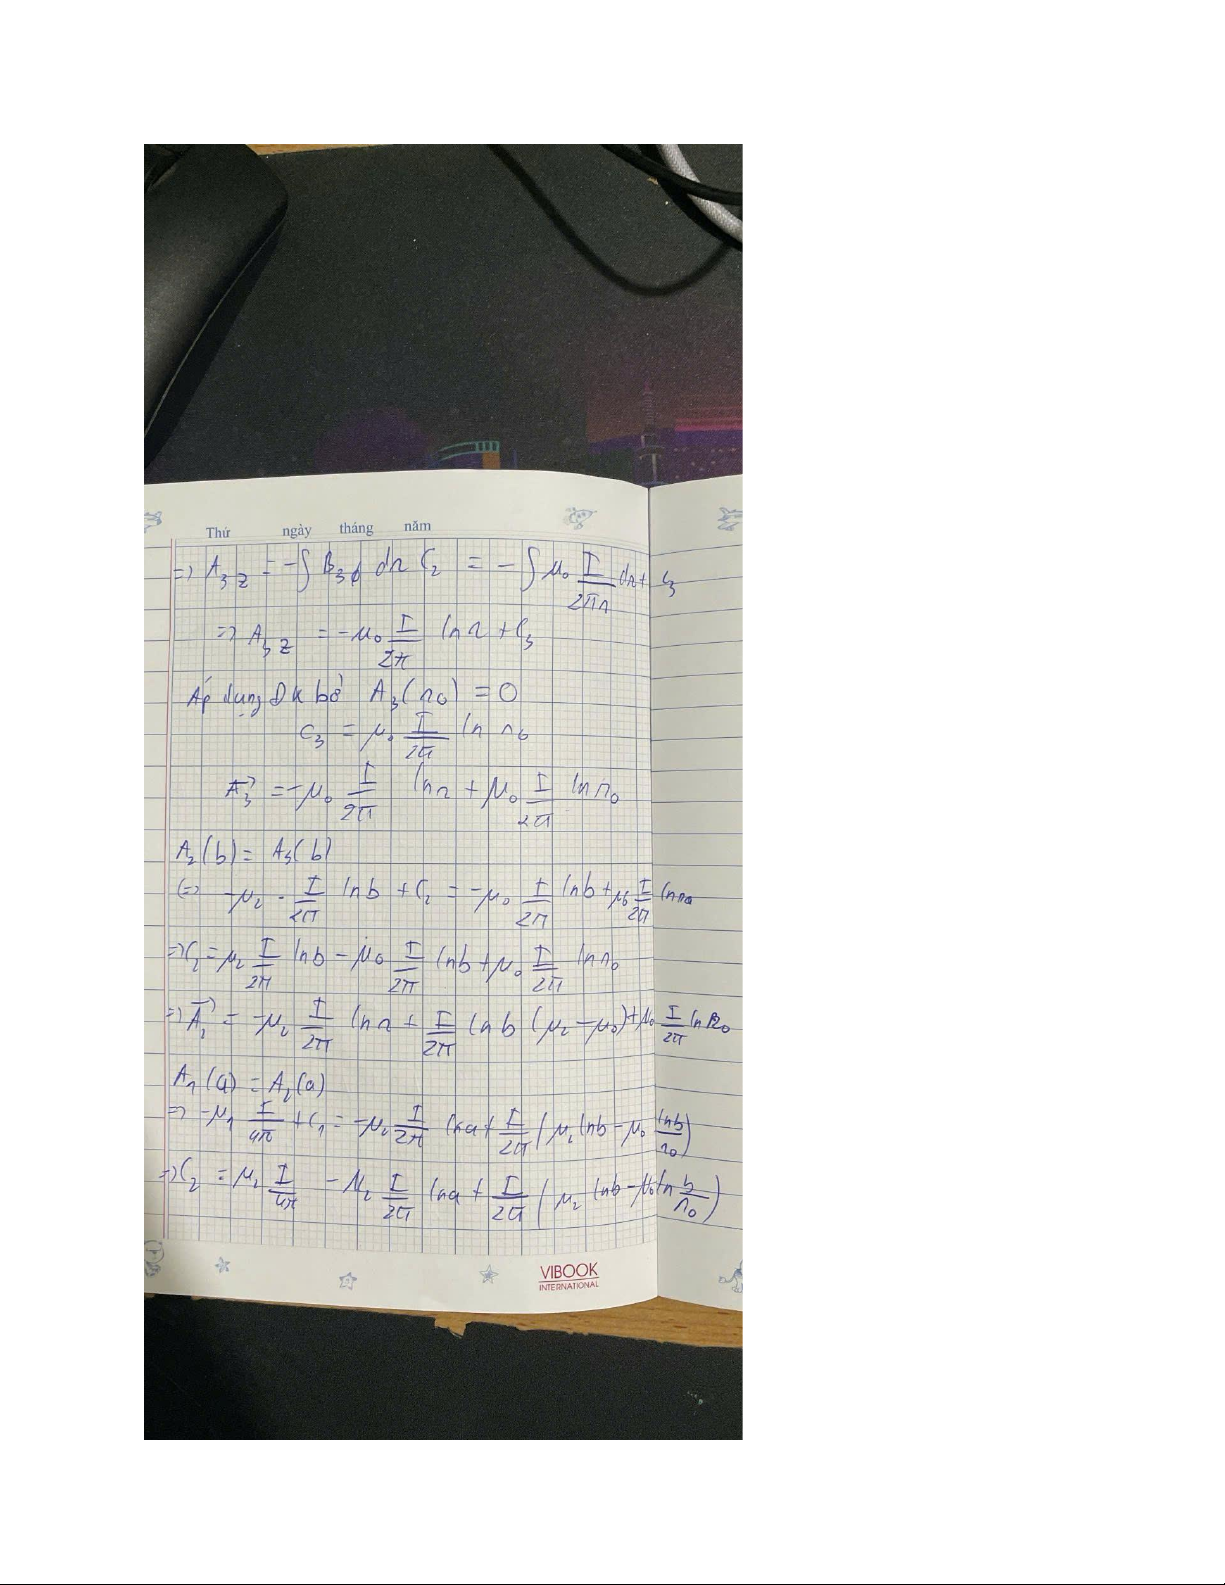 Thứ ngày tháng năm
=> A₃z = -∫ B₃ϕ dr C₂ = -∫ μ₀ I/2πr dr + C₃
=> A₃z = -μ₀ I/2π ln r + C₃
Áp dụng Đk bờ A₃(r₀) = 0
C₃ = μ₀ I/2π ln r₀
A₃⃗ = -μ₀ I/2π ln r + μ₀ I/2π ln r₀
A₂(b) = A₃(b)
(=> -μ₂ · I/2π ln b + C₂ = -μ₀ I/2π ln b + μ₀ I/2π ln r₀
=> C₂ = μ₂ I/2π ln b - μ₀ I/2π ln b + μ₀ I/2π ln r₀
=> A₂⃗ = -μ₂ I/2π ln r + I/2π ln b (μ₂ - μ₀) + μ₀ I/2π ln R₀
A₁(a) = A₂(a)
=> -μ₁ I/4π + C₁ = -μ₂ I/2π ln a + I/2π (μ₂ ln b - μ₀ ln b/r₀)
=> C₂ = μ₁ I/4π - μ₂ I/2π ln a + I/2π (μ₂ ln b - μ₀ ln b/r₀)
VIBOOK
INTERNATIONAL